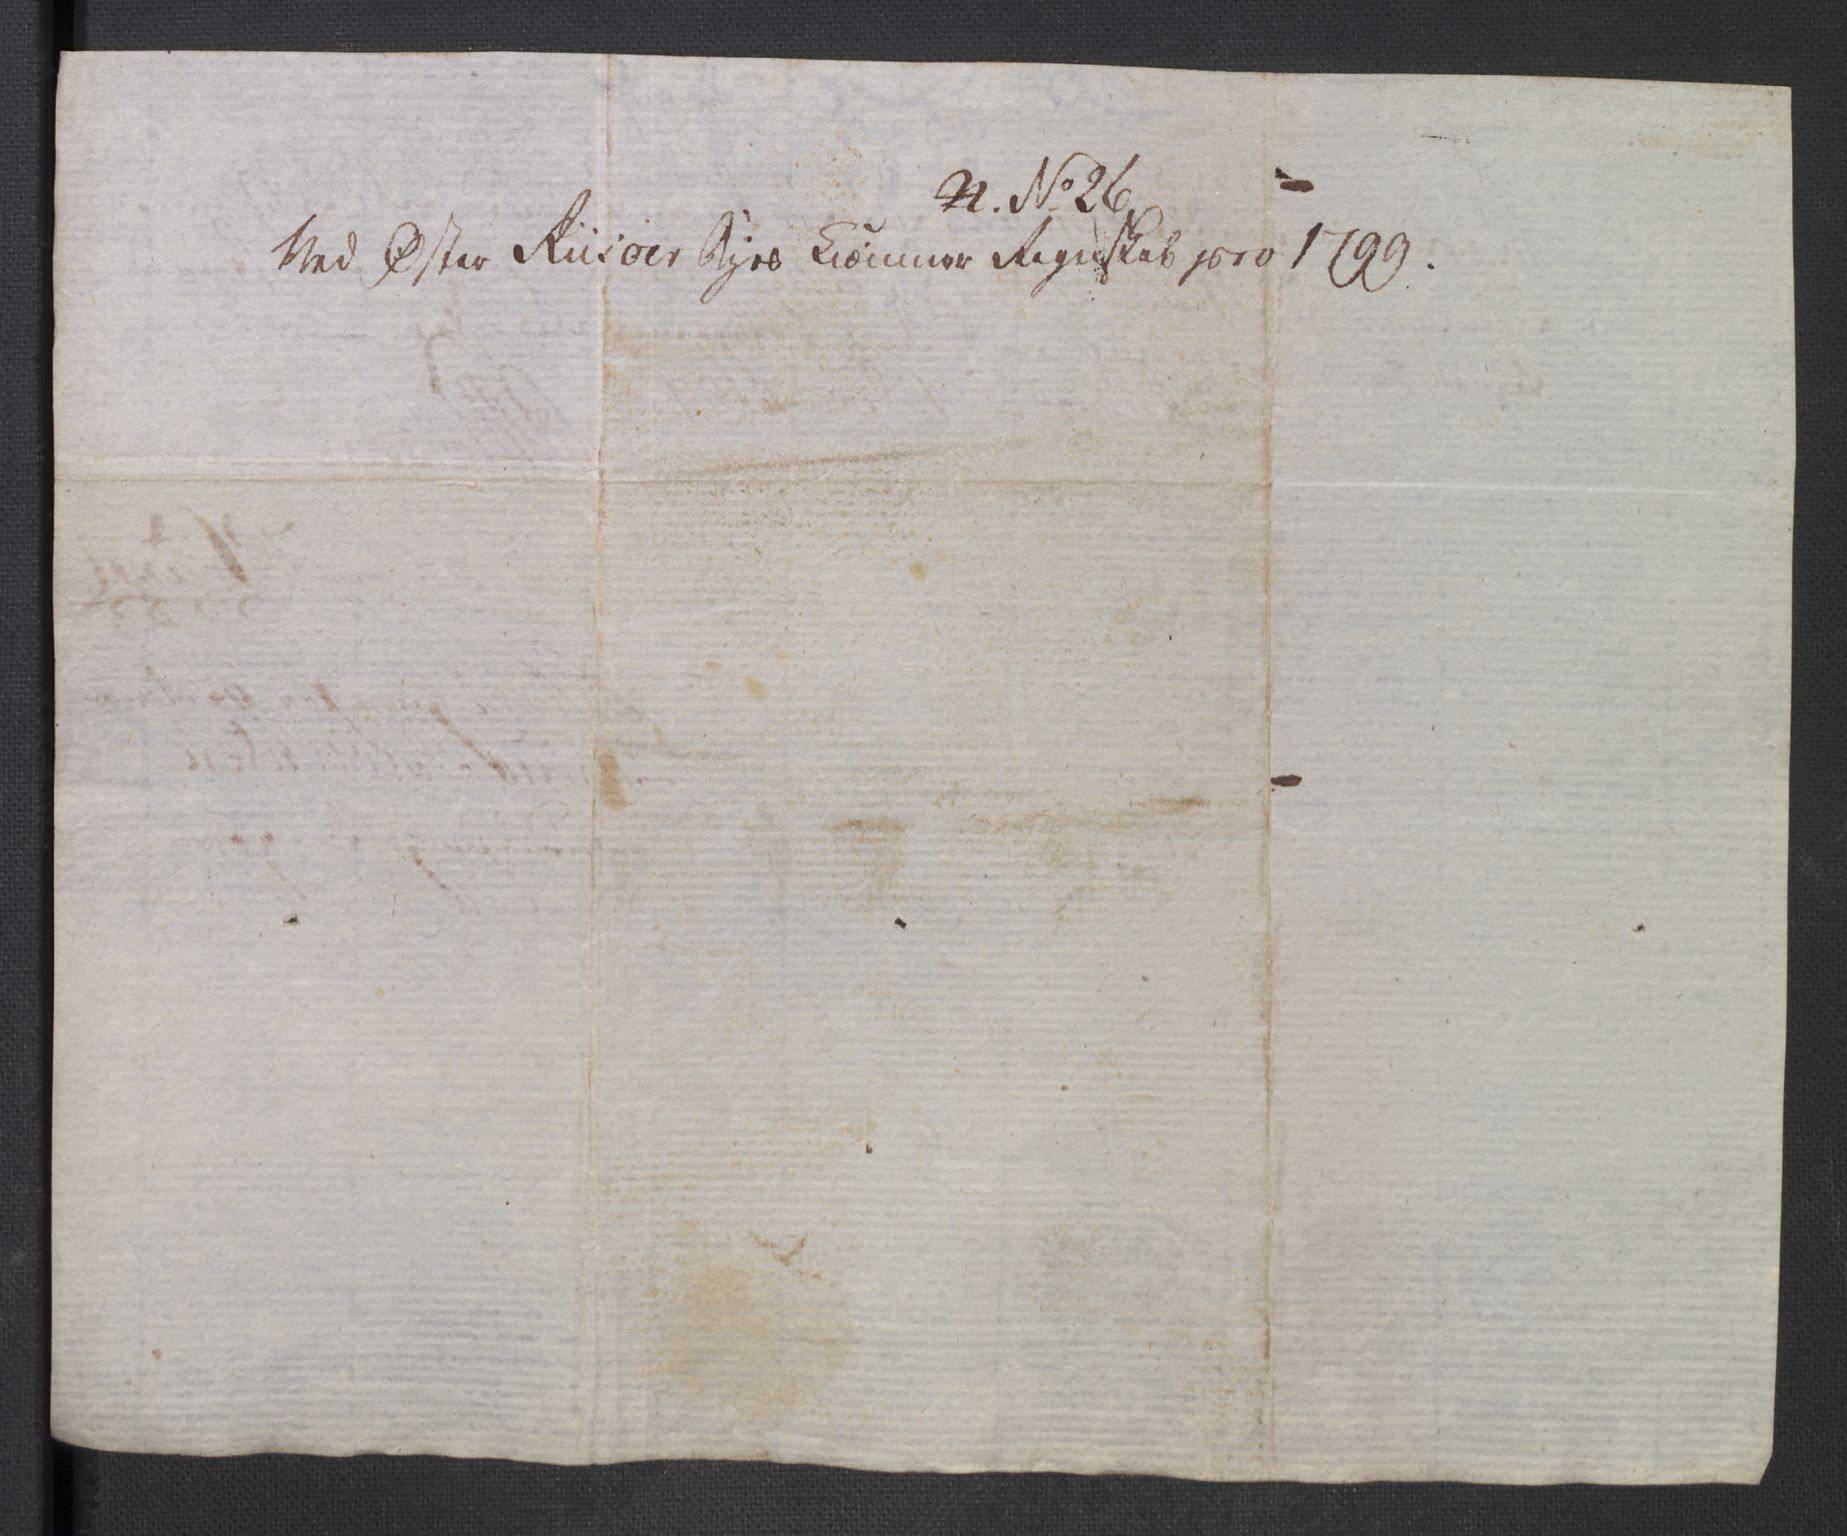 N. No 26
Ved Øster Riisöer Byes Kiömner Regnskab pro 1799.